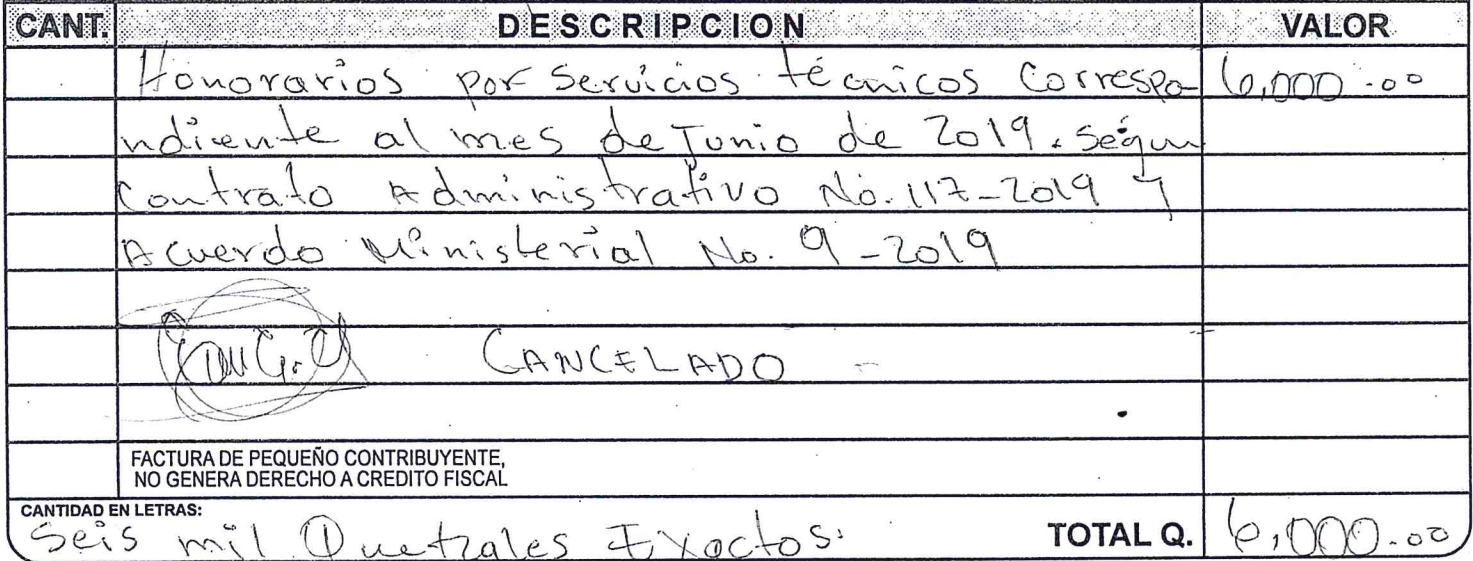 CANT. DESCRIPCION VALOR
Honorarios por Servicios técnicos Correspo- 6,000.00
ndiente al mes de Junio de 2019. Según
Contrato Administrativo No. 117-2019 y
Acuerdo Ministerial No. 9-2019
CANCELADO
FACTURA DE PEQUEÑO CONTRIBUYENTE,
NO GENERA DERECHO A CREDITO FISCAL
CANTIDAD EN LETRAS:
Seis mil Quetzales Exactos. TOTAL Q. 6,000.00